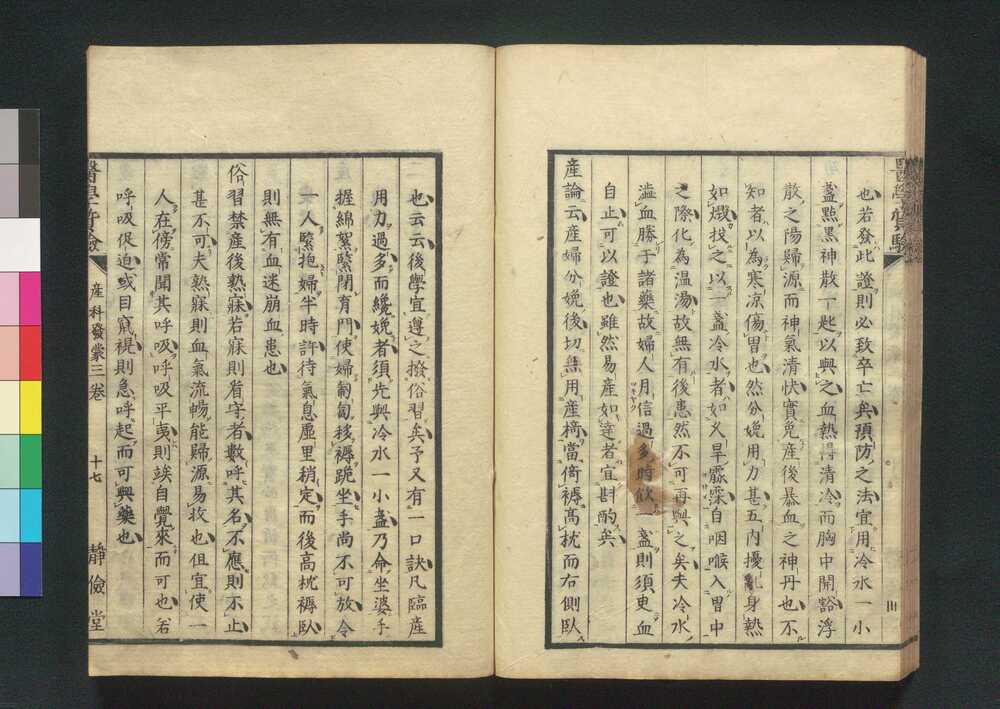 也若發此證則必致卒亡矣預防之法宜用冷水一小
盞點黑神散一匙以與之血熱得清冷而胸中開豁浮
散之陽歸源而神氣清快實免產後暴血之神丹也不
知者以為寒凉傷胃也然分娩用力甚五內擾亂身熱
如燬投之以一盞冷水者如乂旱霡霂自咽喉入胃中
之際化為温湯故無有後患然不可再與之矣夫冷水
澁血勝于諸藥故婦人月信過多時飲一盞則須臾血
自止可以證也雖然易產如達者宜斟酌矣
產論云產婦分娩後切無用產椅當倚褥高枕而右側臥
也云云後學宜遵之撥俗習矣予又有一口訣凡臨產
用力過多而纔娩者須先與冷水一小盞乃命坐婆手
握綿絮緊閉育門使婦匍匐移褥跪坐手尚不可放令
一人緊抱婦半時許待氣息虛里稍定而後高枕褥臥
則無有血迷崩血患也
俗習禁產後熟寐若寐則看守者數呼其名不應則不止
甚不可夫熟寐則血氣流暢能歸源易收也但宜使一
人在傍常聞其呼吸呼吸平夷則竢自覺來而可也若
呼吸促迫或目竄褆則急呼起而可與藥也
醫學實驗
產科發蒙三卷
十七
靜儉堂